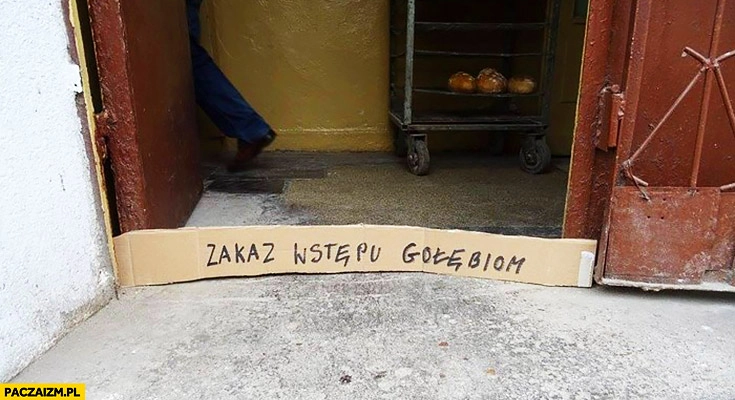 ZAKAZ WSTĘPU GOŁĘBIOM
PACZAIZM.PL